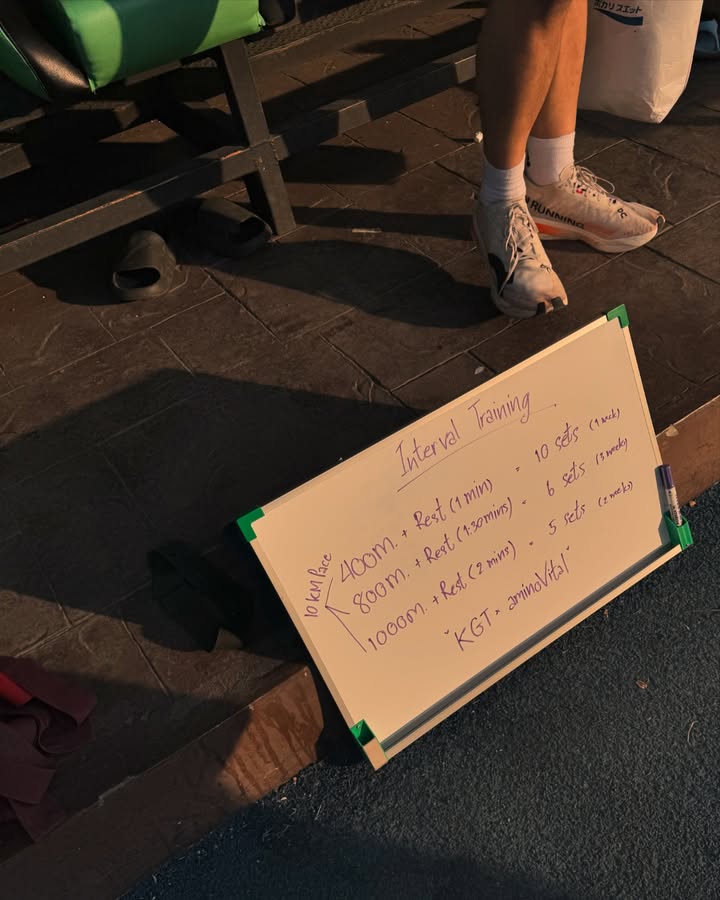 ポカリスエット
RUNNING
Interval Training
10 KM Pace
400m. + Rest (1 min) = 10 sets (1 week)
800m. + Rest (1.30mins) = 6 sets (3 week)
1000m. + Rest (2 mins) = 5 sets (2 weeks)
"KGT × aminoVital"